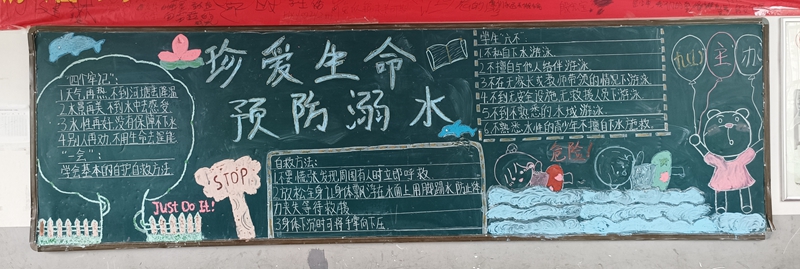 珍爱生命
预防溺水
"四个牢记":
1天气再热,不到河塘去降温
2水景再美,不到水中去感受
3水性再好,没有保障不下水
4别人再劝,不用生命去逞能
"一会":
学会基本的自护自救方法.
STOP
Just Do It!
自救方法:
1不要慌张发现周围有人时立即呼救
2放松全身让身体飘浮在水面上用脚踢水防止体
力丧失等待救援
3身体下沉时可将手掌向下压
学生"六不:
1.不私自下水游泳
2.不擅自与他人结伴游泳
3.不在无家长或教师带领的情况下游泳
4.不到无安全设施无救援人员下游泳
5.不到不熟悉的水域游泳
6.不熟悉水性的青少年不擅自下水施救
危险!
主办